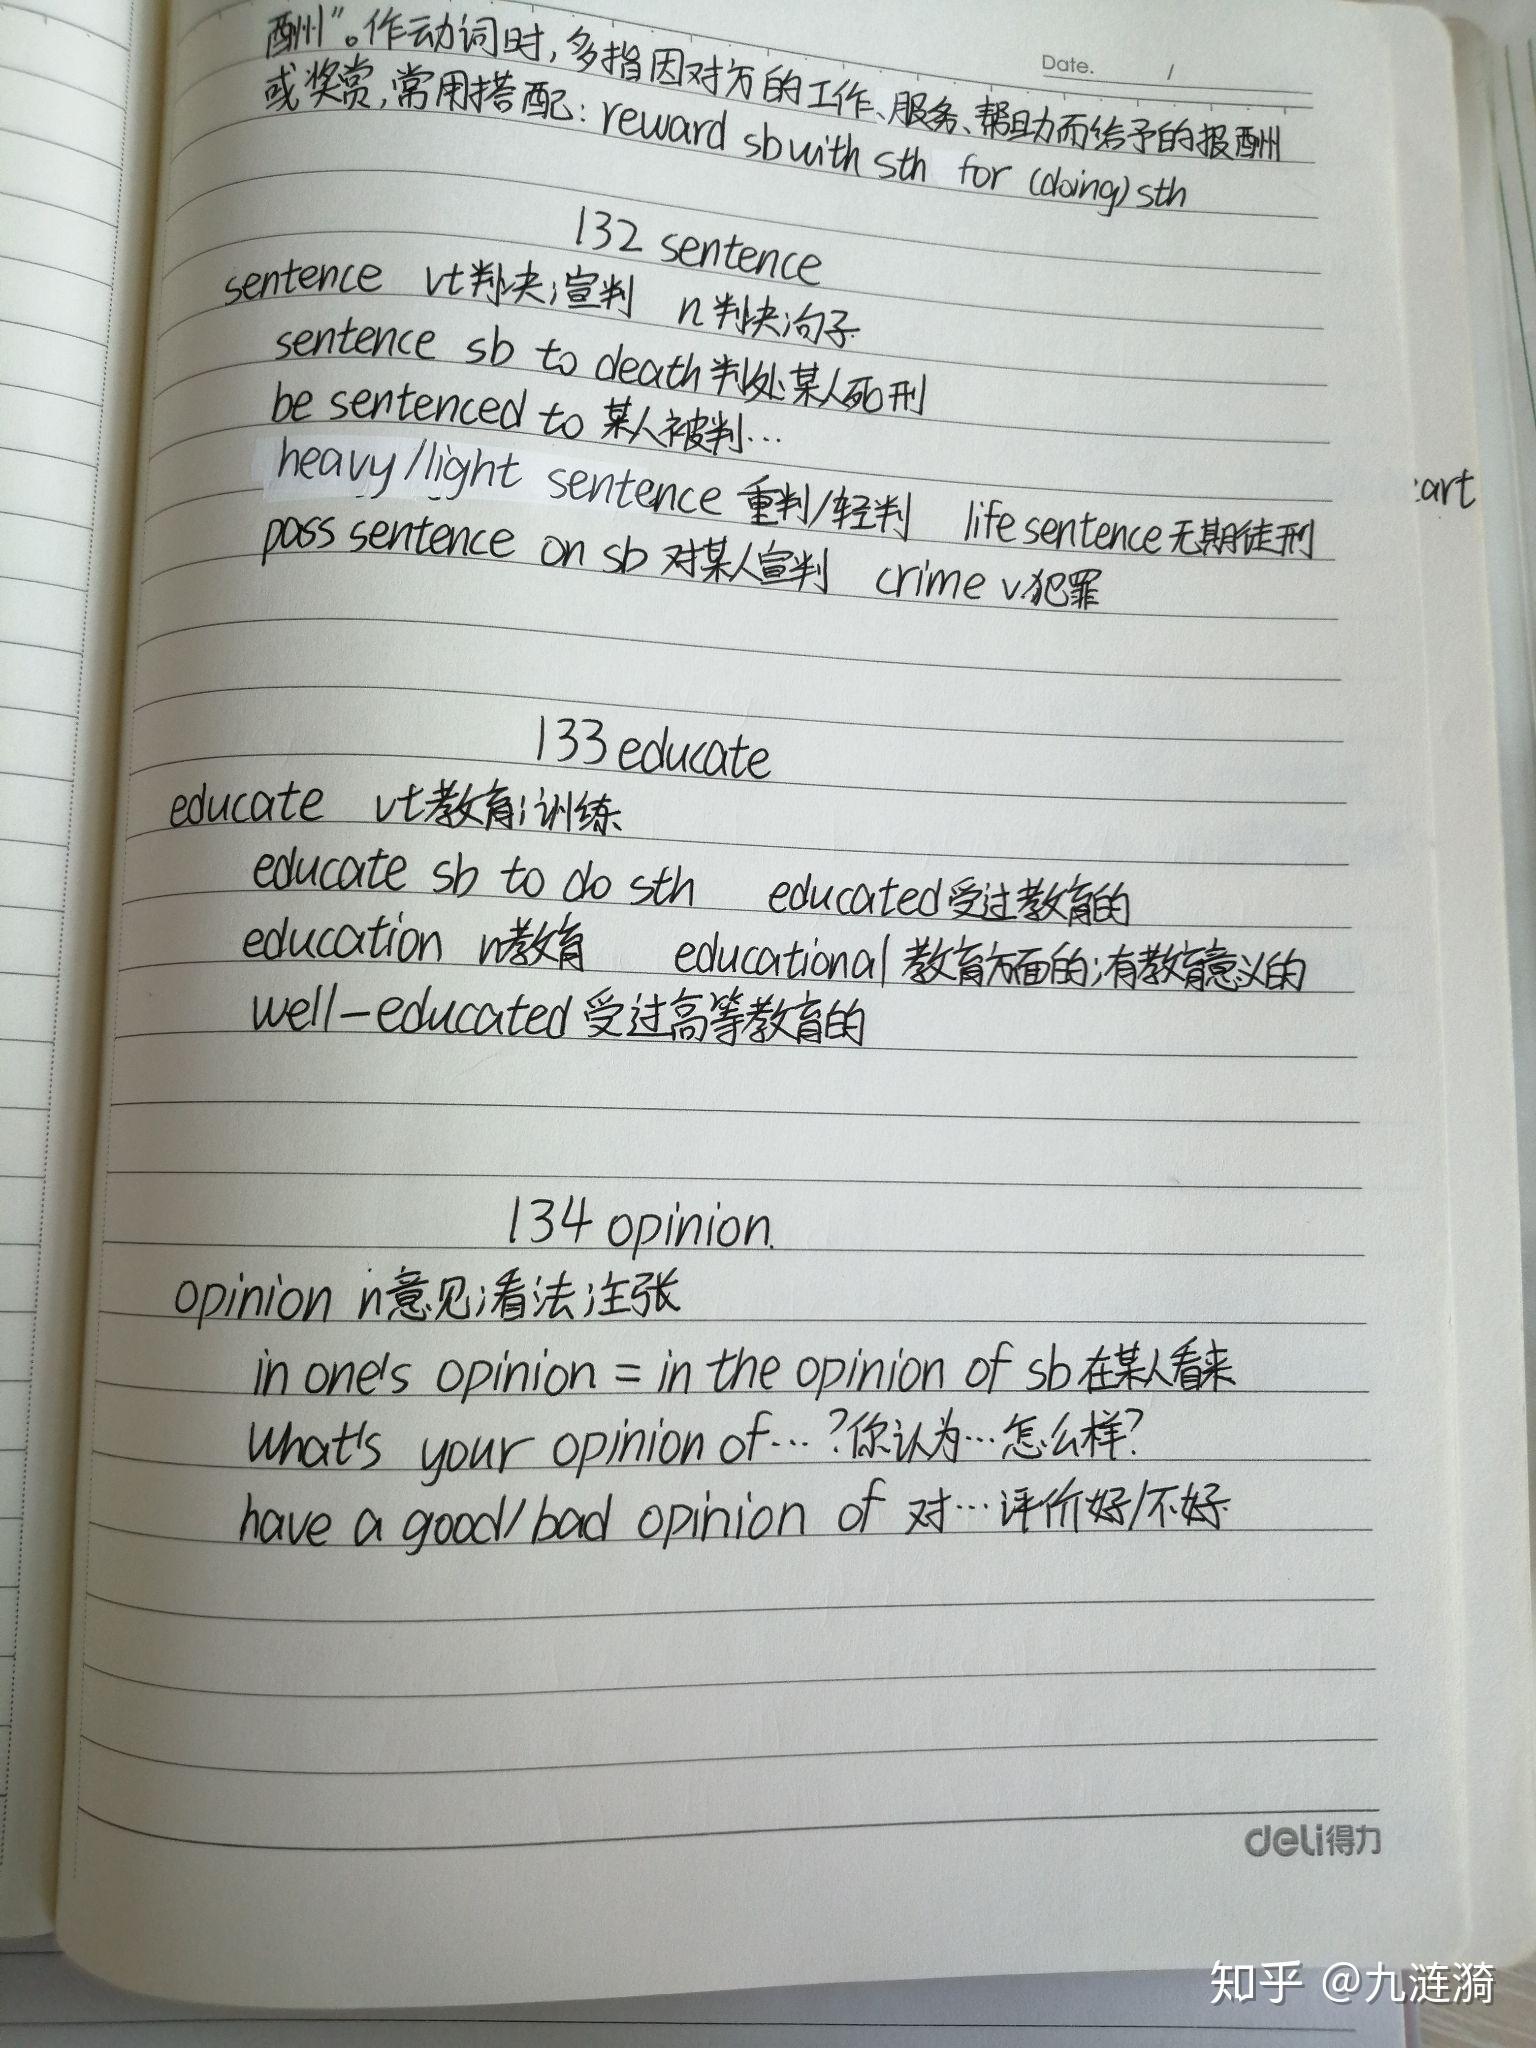 Date. /
酬”。作动词时,多指因对方的工作、服务、帮助而给予的报酬
或奖赏,常用搭配: reward sb with sth for (doing) sth
132 sentence
sentence vt判决;宣判 n判决;句子
sentence sb to death判处某人死刑
be sentenced to 某人被判…
heavy/light sentence 重判/轻判 life sentence无期徒刑
pass sentence on sb 对某人宣判 crime v.犯罪
133 educate
educate vt教育;训练
educate sb to do sth educated受过教育的
education n教育 educational 教育方面的;有教育意义的
well-educated受过高等教育的
134 opinion.
opinion n意见;看法;主张
in one's opinion = in the opinion of sb在某人看来
what's your opinion of…?你认为…怎么样?
have a good/bad opinion of 对…评价好/不好
deli得力
知乎 @九涟漪